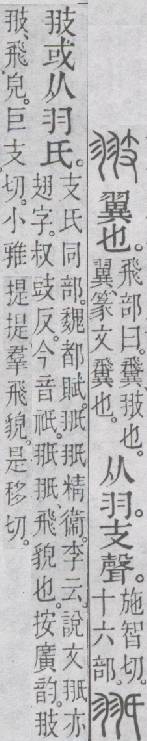 翼也。
飛部曰。𩙺、翄也。
翼、篆文𩙺也。
从羽。支聲。
施智切。
十六部。
翄或从羽氏。
支氏同部。魏都賦。𦐊𦐊精衞。李云。說文𦐊亦
翅字。叔豉反。今音祇。𦐊𦐊、飛貌也。按廣韵。翄
翄、飛皃。巨支切。小雅
提提羣飛貌。是移切。